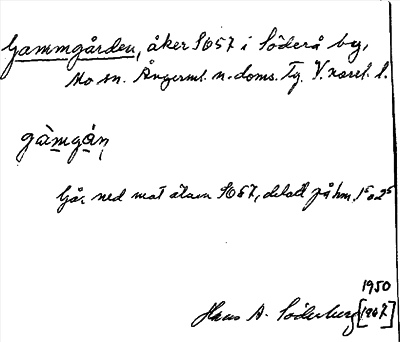 Gammgården, åker S657 i Söderå by,
Mo sn. Ångerml. n. doms. Tg. V.
gàmgån
Går ned mot älven S657, delad på hm.
1950
Hans A. Söderberg [1907]